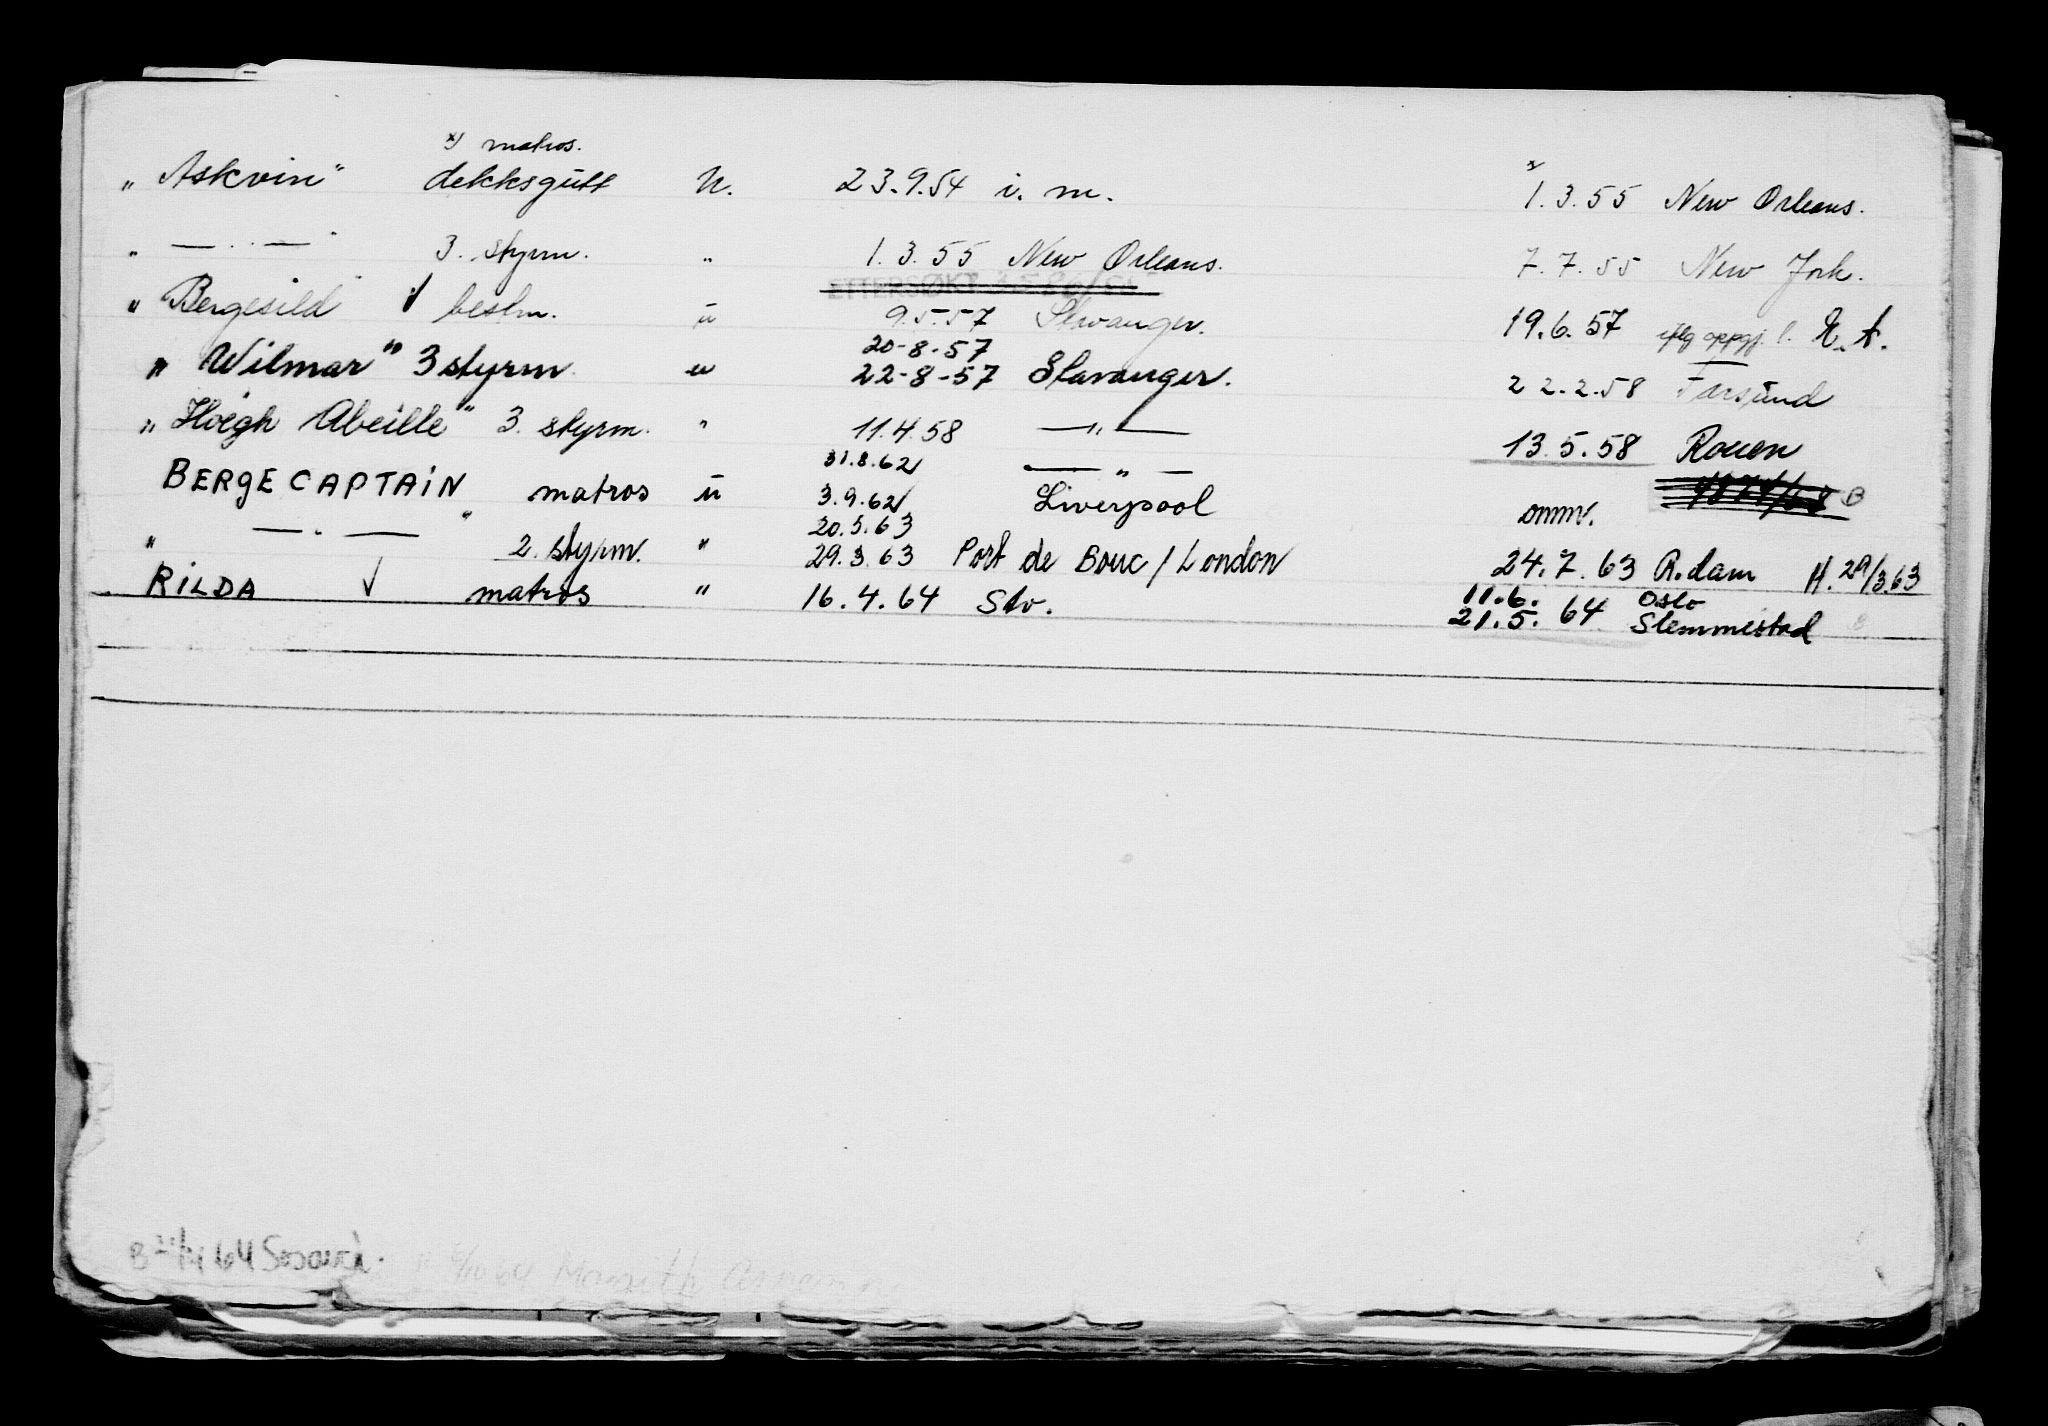 x) matros.
„ Askvin" dekksgutt U. 23.9.54 i. m. x 1.3.55 New Orleans.
„ — „ — " 3. styrm. " 1.3.55 New Orleans. 7.7.55 New York.
ETTERSØKT
„ Bergesild" √ bestm. u 9.5.57 Stavanger. 19.6.57 iflg oppgj. l. U.A.
20-8-57
„ Wilmar" 3 styrm. u 22-8-57 Stavanger. 22.2.58 Farsund
„ Höegh Abeille" 3. styrm. " 11.4.58 — „ — 13.5.58 Rouen
31.8.62 — „ —
BERGE CAPTAIN" matros u 3.9.62 Liverpool omm. B
20.3.63
„ — „ — 2. styrm. " 29.3.63 Port de Bouc / London 24.7.63 R.dam H. 29/3.63
RILDA √ matros " 16.4.64 Stv. 11.6. Oslo
21.5.64 Slemmestad
B 64
64